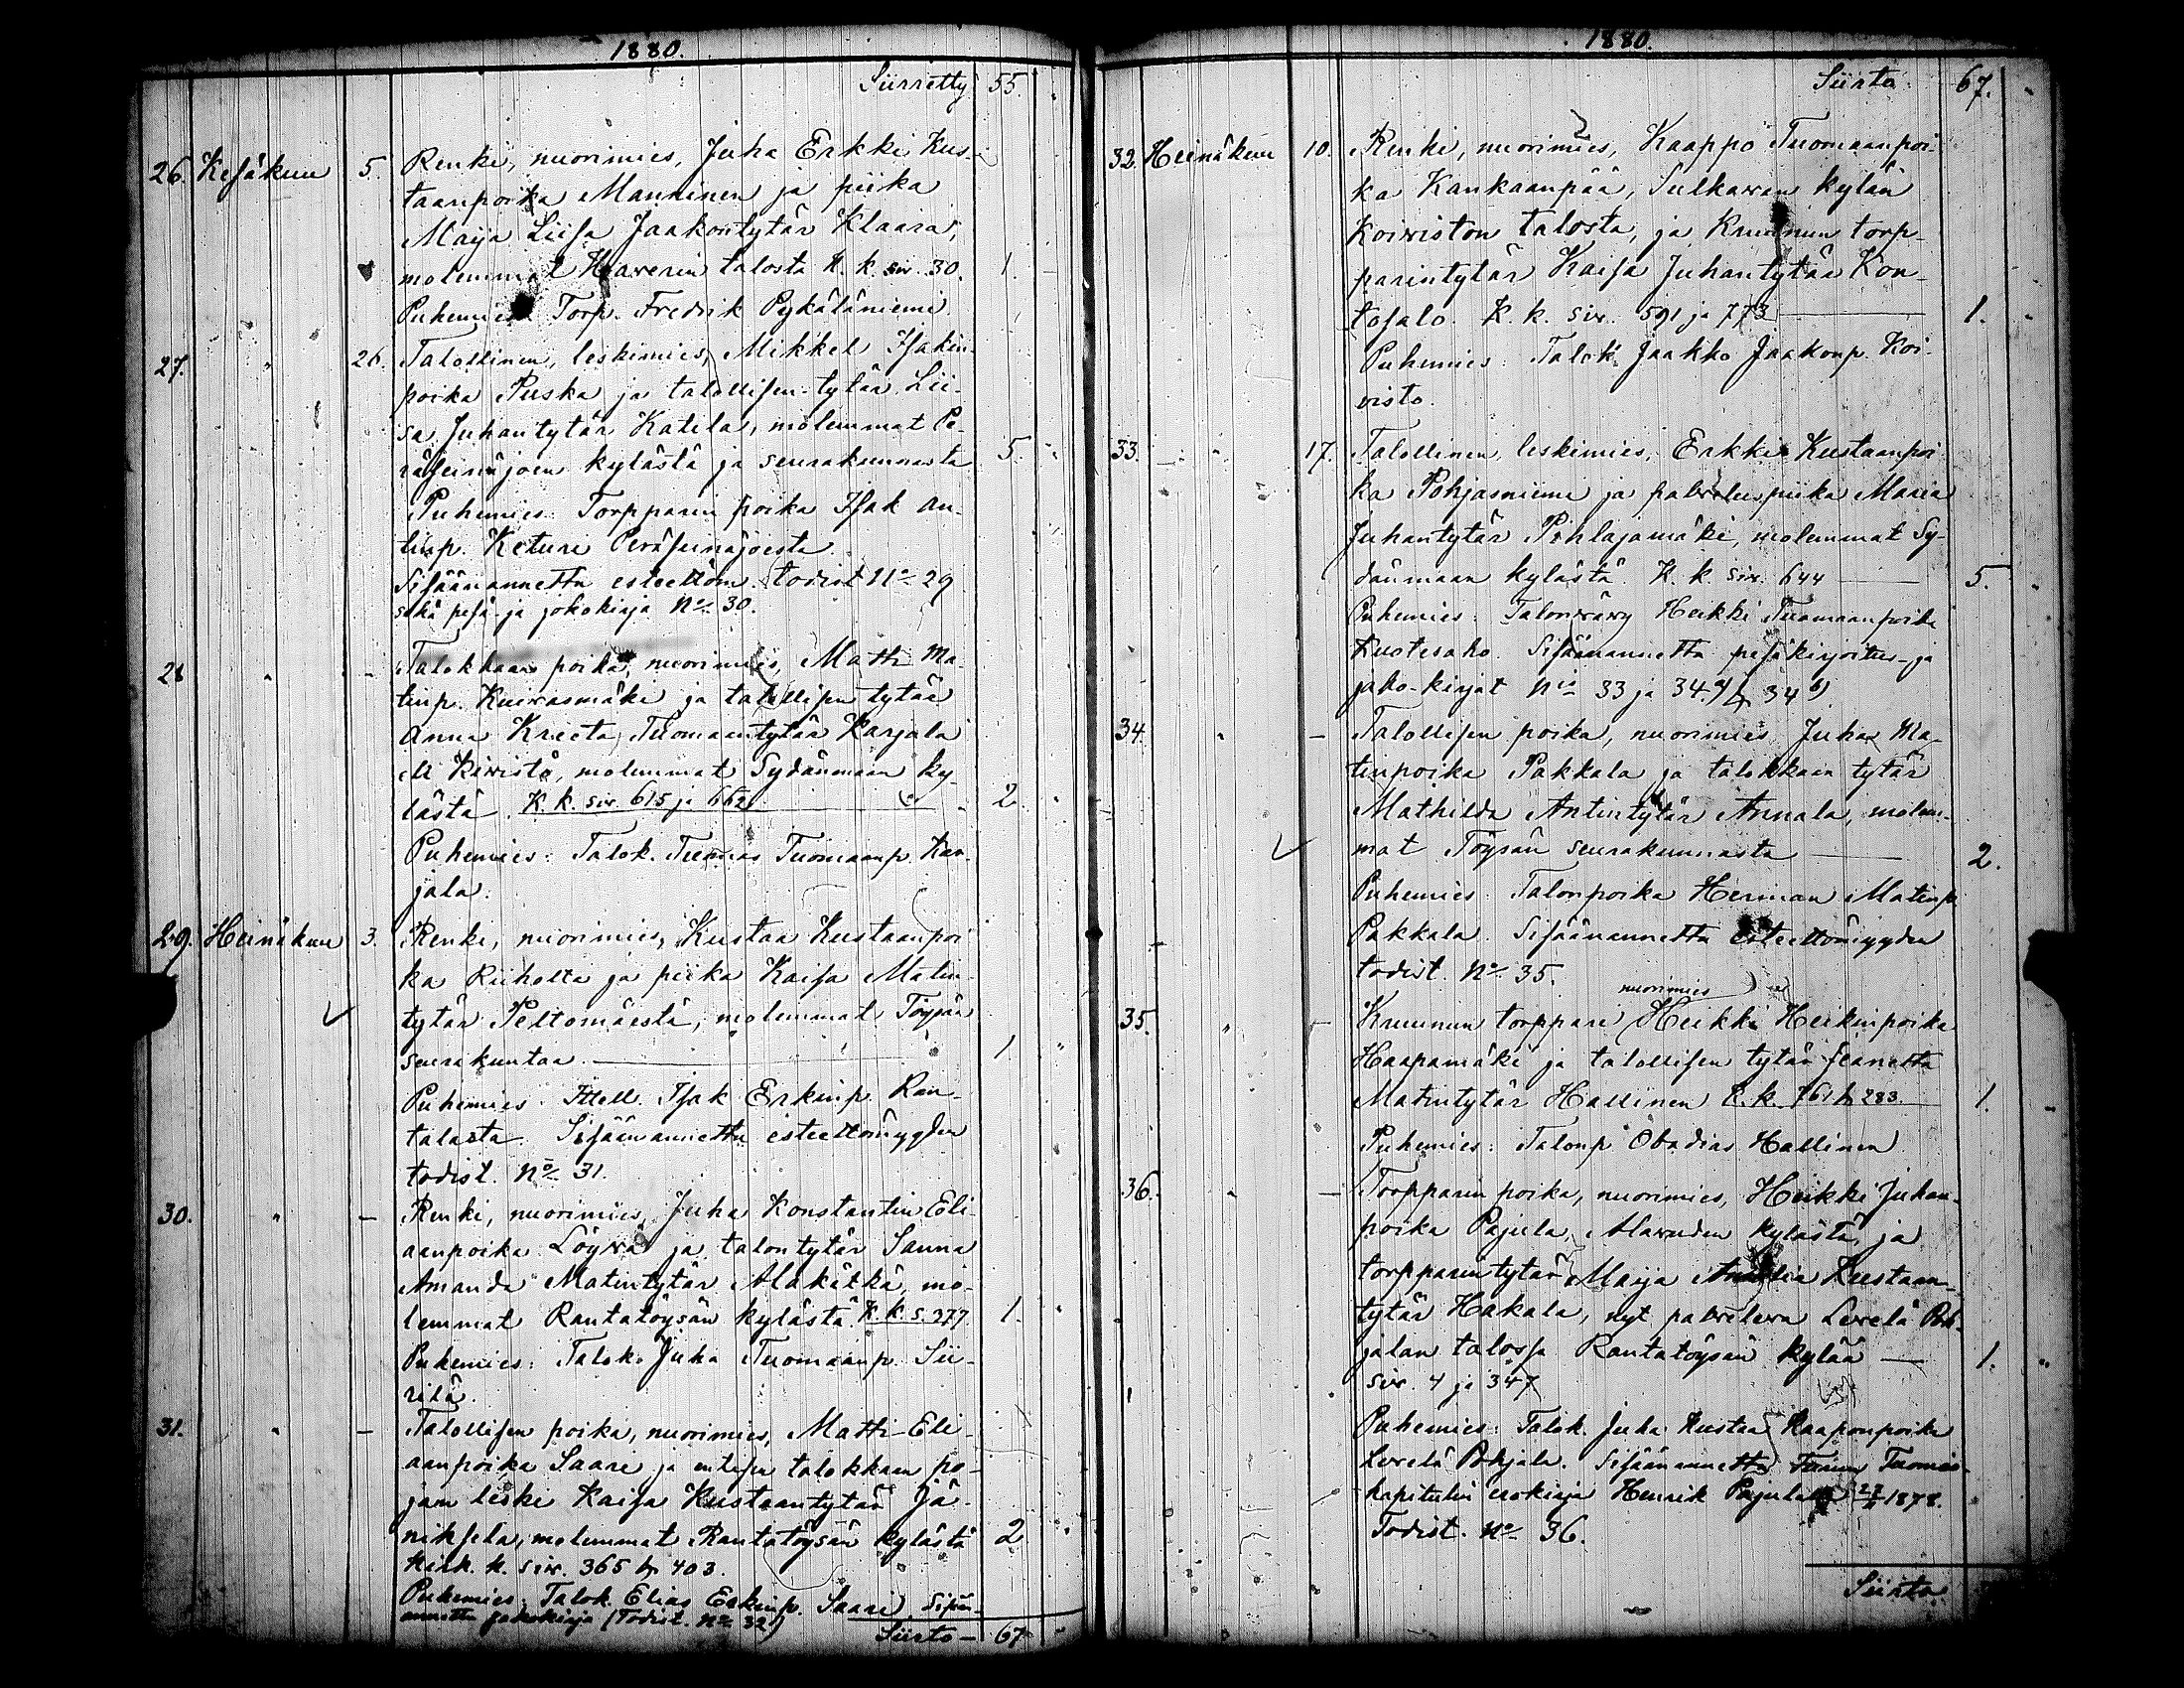 1880.
Siirretty 55.
26. Kesäkuu 5. Renki, nuorimies, Juha Erkki Kus-
taanpoika Mantinen ja piika
Maija Liisa Jaakontytär Klaara,
molemmat Haverin talosta K. k. siv. 30. 1.
Puhemies Torp. Fredrik Pykäläniemi
27. " 26. Talollinen, leskimies, Mikkel Isakin-
poika Puska ja talollisen tytär Lii-
sa Juhantytär Katila, molemmat Pe-
räseinäjoen kylästä ja seurakunnasta 5.
Puhemies Torpparin poika Isak An-
tinp. Keturi Peräseinäjoesta.
Sisäänannettu esteettöm. todist No 29
sekä pesä- ja jakokirja No 30.
28 " - Talokkaan poika, nuorimies, Matti Ma-
tinp. Kuivasmäki ja talollisen tytär
Anna Kreeta Tuomaantytär Karjala
molemmat Sydänmaan ky-
lästä. K. k. siv. 615 ja 662 2.
Puhemies: Talok. Tuomas Tuomaanp. Kar-
jala.
29. Heinäkuu 3. Renki, nuorimies, Kustaa Kustaanpoi-
ka Riiholta ja piika Kaisa Matin-
tytär Peltomäestä, molemmat Töysän
seurakuntaa 1
Puhemies: Isak Erkinp. Ran-
talasta. Sisäänannettu esteettömyyden
todist. No 31.
30. " - Renki, nuorimies, Juha Konstantin Eli-
aanpoika Löyvä ja talontytär Sanna
Amanda Matintytär Alakätkä, mo-
lemmat Rantatöysän kylästä K. k. s. 377. 1.
Puhemies: Talok. Juha Tuomaanp. Sii-
rilä.
31. " - Talollisen poika, nuorimies, Matti Eli-
aanpoika Saari ja entisen talokkaan po-
jan leski Kaisa Kustaantytär Jä-
niksela, molemmat Rantatöysän kylästä 2
Kirk. k. siv. 365 & 403.
Puhemies: Talok. Elias Erkinp. Saari. Sisään-
annettu jakokirja (Todist. No 32)
Siirto - 67
1880.
Siirto 67.
32. Heinäkuu 10. Renki, nuorimies, Kaappo Tuomaanpoi-
ka Kankaanpää, Sulkavan kylän
Koiviston talosta, ja Kruunun torp-
parintytär Kaisa Juhantytär Kon-
tosalo. K. k. siv. 591 ja 773 1.
Puhemies: Talok. Jaakko Jaakonp. Koi-
visto.
33. " 17. Talollinen, leskimies, Erkki Kustaanpoi-
ka Pohjasniemi ja palveluspiika Maria
Juhantytär Pihlajamäki, molemmat Sy-
dänmaan kylästä K. k. siv. 644 5.
Puhemies: Talonvävy Heikki Tuomaanpoika
Kuotesaho. Sisäänannettu pesäkirjoitus- ja
jako-kirjat Nis 33 ja 34 a) & 34 b)
34. " - Talollisen poika, nuorimies Juha Ma-
tinpoika Pakkala ja talokkaan tytär
Mathilda Antintytär Annala, molem-
mat Töysän seurakunnasta 2.
Puhemies: Talonpoika Herman Matinp.
Pakkala. Sisäänannettu esteettömyyden
todist. No 35.
nuorimies
35. " - Kruunun torppari Heikki Heikinpoika
Haapamäki ja talollisen tytär Seanetta
Matintytär Hallinen K. k. 761 & 283. 1.
Puhemies: Talonp. Obadias Hallinen
36. " - Torpparin poika, nuorimies, Heikki Juhan-
poika Pajula, Alavuden kylästä, ja
torpparintytär Maija Amalia Kustaan-
tytär Hakala, nyt palveleva Levelä Poh-
jalan talossa Rantatöysän kylää 1.
siv. 4 ja 347
Puhemies: Talok. Juha Kustaa Kaaponpoika
Levelä Pohjala. Sisäänannettu Tuomio-
kapitulin erokirja Henrik Pajulalle 1878.
Todist. No 36.
Siirto